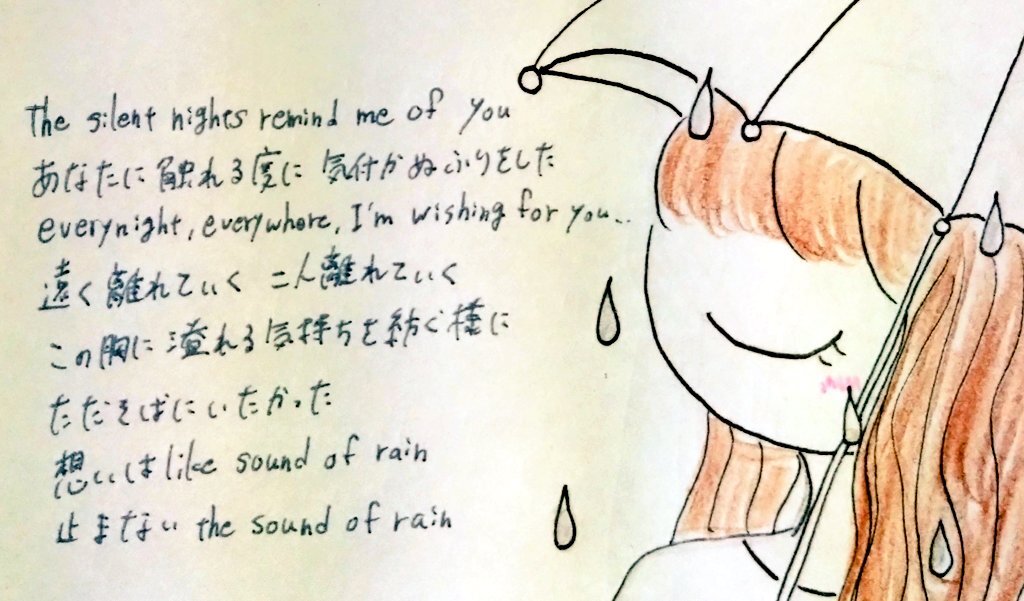 The silent nights remind me of you
あなたに触れる度に 気付かぬふりをした
everynight, everywhere, I'm wishing for you..
遠く離れていく 二人離れていく
この胸に溢れる気持ちを紡ぐ様に
ただそばにいたかった
想いは like sound of rain
止まない the sound of rain